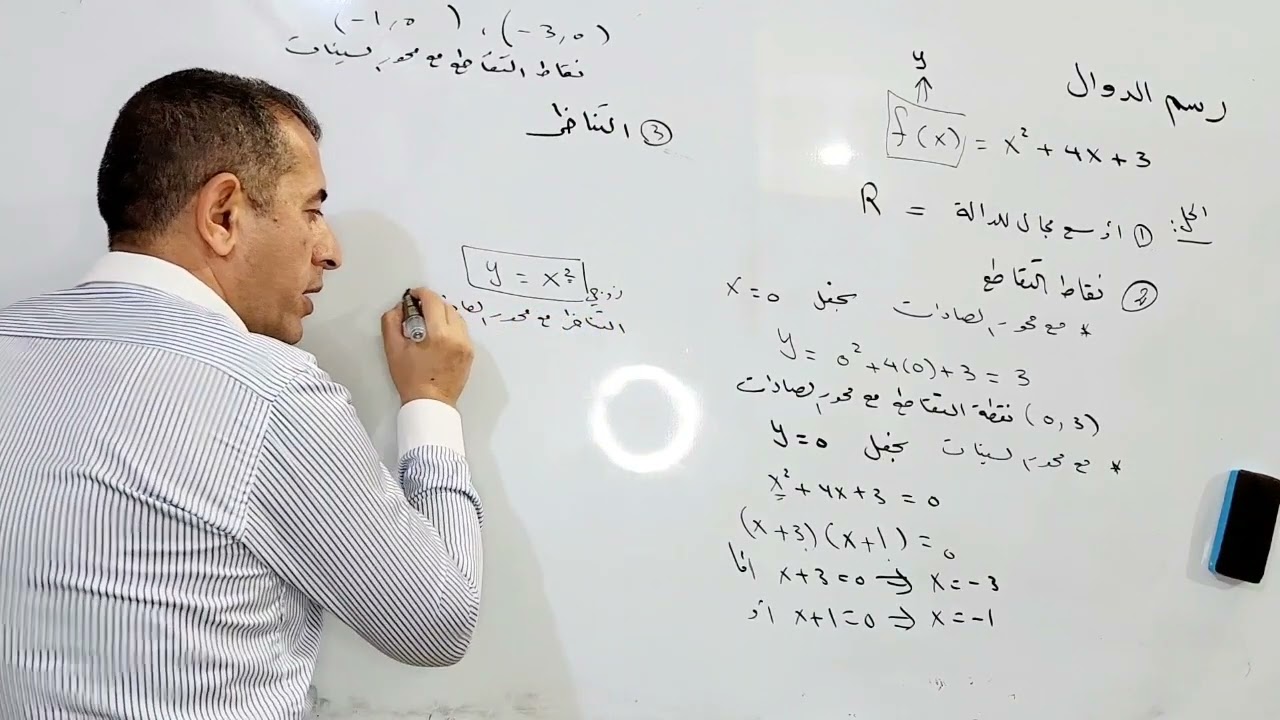 رسم الدوال
y
↑
f(x) = x² + 4x + 3
الحل:
① أوسع مجال للدالة = R
② نقاط التقاطع
* مع محور الصادات نجعل x = 0
y = 0² + 4(0) + 3 = 3
(0, 3) نقطة التقاطع مع محور الصادات
* مع محور السينات نجعل y = 0
x² + 4x + 3 = 0
(x + 3)(x + 1) = 0
اما x + 3 = 0 ⇒ x = -3
أو x + 1 = 0 ⇒ x = -1
(-1, 0) ، (-3, 0)
نقاط التقاطع مع محور السينات
③ التناظر
y = x² زوجي
التناظر مع محور